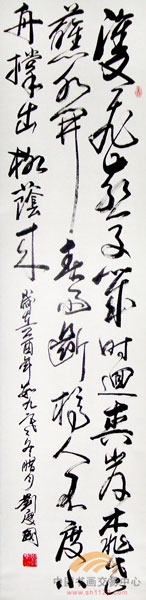 雙飛燕子幾時迴夾岸桃花
蘸水開春雨斷橋人不度小
舟撑出柳蔭來 歲在酉年九冬腊月劉慶國
中国书画交易中心